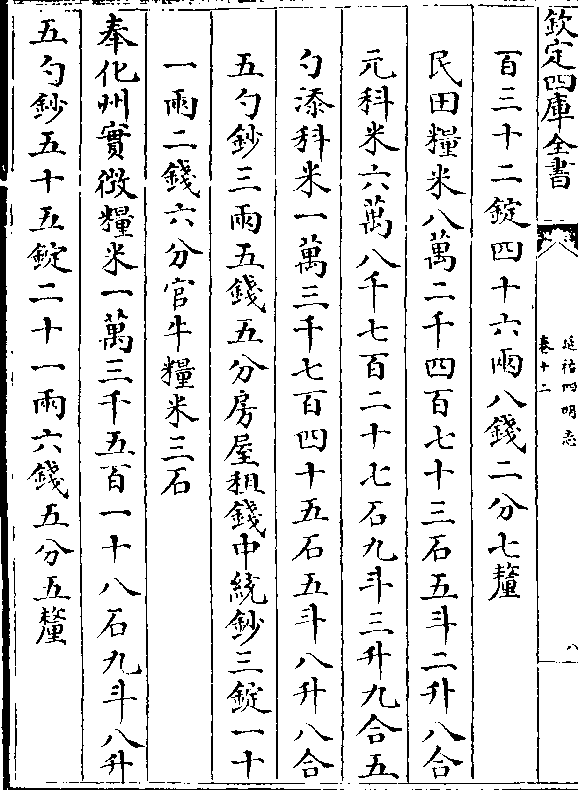 欽定四庫全書
延祐四明志
卷十二
八
百三十二錠四十六兩八錢二分七釐
民田糧米八萬二千四百七十三石五斗二升八合
元科米六萬八千七百二十七石九斗三升九合五
勺添科米一萬三千七百四十五石五斗八升八合
五勺鈔三兩五錢五分房屋租錢中統鈔三錠一十
一兩二錢六分官牛糧米三石
奉化州實徴糧米一萬三千五百一十八石九斗八升
五勺鈔五十五錠二十一兩六錢五分五釐